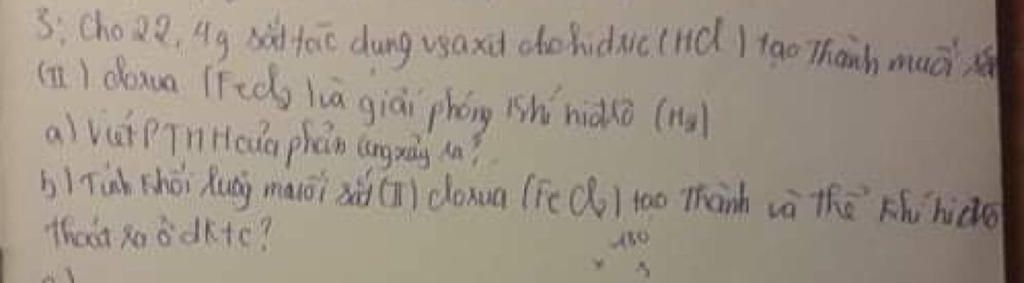 3: Cho 22,4g sắt tác dụng vs axit clohidric (HCl) tạo thành muối sắt
(II) clorua (FeCl₂) và giải phóng khí hiđrô (H₂)
a) Viết PTHH của phản ứng xảy ra?
b) Tính khối lượng muối sắt (II) clorua (FeCl₂) tạo thành và thể khí hiđrô
thoát ra ở đktc?
a)